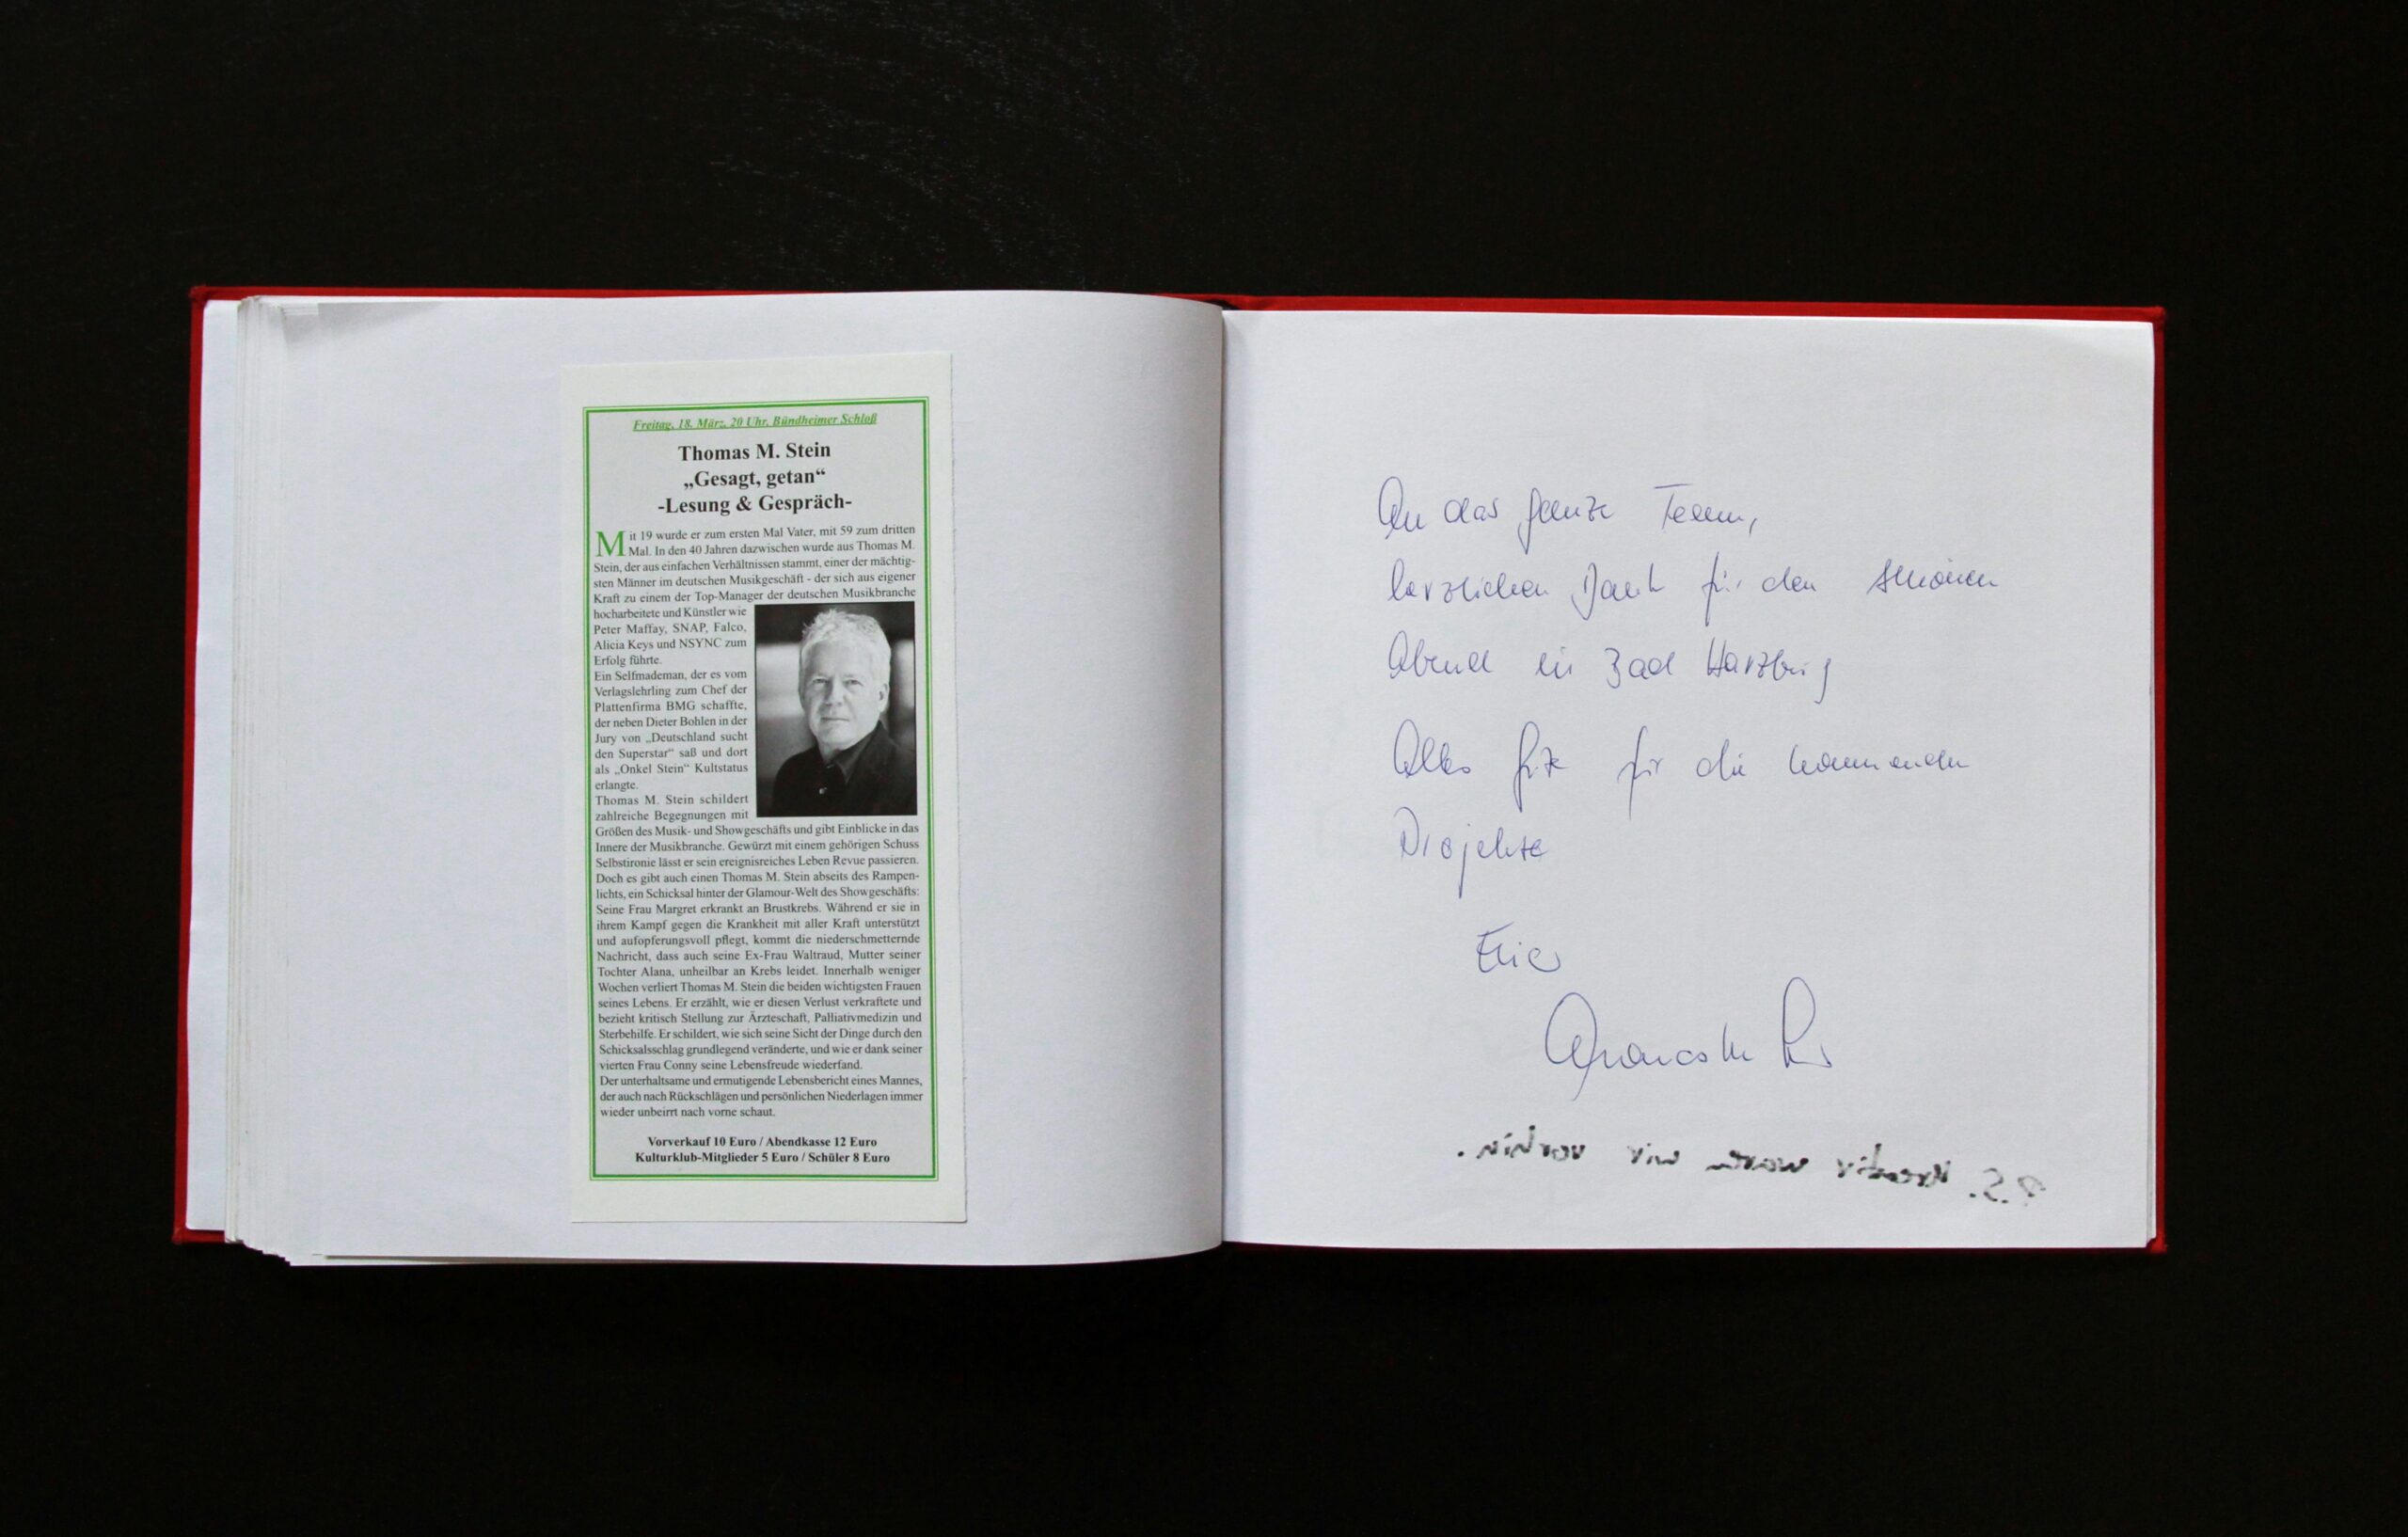 Freitag, 18. März, 20 Uhr, Bündheimer Schloß
Thomas M. Stein
„Gesagt, getan“
-Lesung & Gespräch-
Mit 19 wurde er zum ersten Mal Vater, mit 59 zum dritten
Mal. In den 40 Jahren dazwischen wurde aus Thomas M.
Stein, der aus einfachen Verhältnissen stammt, einer der mächtig-
sten Männer im deutschen Musikgeschäft - der sich aus eigener
Kraft zu einem der Top-Manager der deutschen Musikbranche
hocharbeitete und Künstler wie
Peter Maffay, SNAP, Falco,
Alicia Keys und NSYNC zum
Erfolg führte.
Ein Selfmademan, der es vom
Verlagslehrling zum Chef der
Plattenfirma BMG schaffte,
der neben Dieter Bohlen in der
Jury von „Deutschland sucht
den Superstar“ saß und dort
als „Onkel Stein“ Kultstatus
erlangte.
Thomas M. Stein schildert
zahlreiche Begegnungen mit
Größen des Musik- und Showgeschäfts und gibt Einblicke in das
Innere der Musikbranche. Gewürzt mit einem gehörigen Schuss
Selbstironie lässt er sein ereignisreiches Leben Revue passieren.
Doch es gibt auch einen Thomas M. Stein abseits des Rampen-
lichts, ein Schicksal hinter der Glamour-Welt des Showgeschäfts:
Seine Frau Margret erkrankt an Brustkrebs. Während er sie in
ihrem Kampf gegen die Krankheit mit aller Kraft unterstützt
und aufopferungsvoll pflegt, kommt die niederschmetternde
Nachricht, dass auch seine Ex-Frau Waltraud, Mutter seiner
Tochter Alana, unheilbar an Krebs leidet. Innerhalb weniger
Wochen verliert Thomas M. Stein die beiden wichtigsten Frauen
seines Lebens. Er erzählt, wie er diesen Verlust verkraftete und
bezieht kritisch Stellung zur Ärzteschaft, Palliativmedizin und
Sterbehilfe. Er schildert, wie sich seine Sicht der Dinge durch den
Schicksalsschlag grundlegend veränderte, und wie er dank seiner
vierten Frau Conny seine Lebensfreude wiederfand.
Der unterhaltsame und ermutigende Lebensbericht eines Mannes,
der auch nach Rückschlägen und persönlichen Niederlagen immer
wieder unbeirrt nach vorne schaut.
Vorverkauf 10 Euro / Abendkasse 12 Euro
Kulturklub-Mitglieder 5 Euro / Schüler 8 Euro
An das ganze Team,
herzlichen Dank für den schönen
Abend in Bad Harzburg
Alles Gute für die kommenden
Projekte
P.S. Kreativ waren wir vorhin.